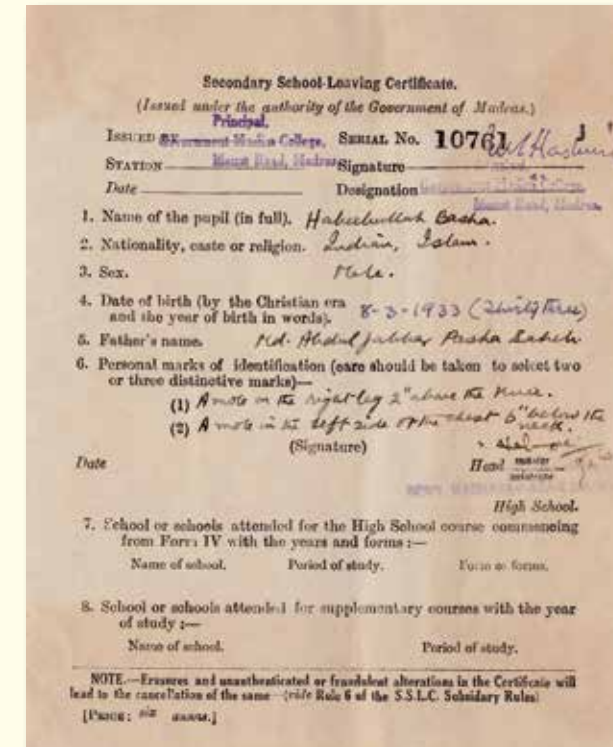 Secondary School-Leaving Certificate.
(Issued under the authority of the Government of Madras.)
Principal,
ISSUED BY Government Madras College, SERIAL No. 10761
STATION Mount Road, Madras Signature
Date Designation
Mount Road, Madras.
1. Name of the pupil (in full). Habeebullah Basha.
2. Nationality, caste or religion. Indian, Islam.
3. Sex. Male.
4. Date of birth (by the Christian era
and the year of birth in words). 8-3-1933 (Thirty three)
5. Father's name. Md. Abdul Jabbar Pasha Saheb
6. Personal marks of identification (care should be taken to select two
or three distinctive marks)—
(1) A mole on the right leg 2" above the knee.
(2) A mole in the left side of the chest 6" below the
neck.
(Signature)
Date Head master
mistress
High School.
7. School or schools attended for the High School course commencing
from Form IV with the years and forms :—
Name of school. Period of study. Form or forms.
8. School or schools attended for supplementary courses with the year
of study :—
Name of school. Period of study.
NOTE.—Erasures and unauthenticated or fraudulent alterations in the Certificate will
lead to the cancellation of the same (vide Rule 6 of the S.S.L.C. Subsidary Rules)
[PRICE: six annas.]